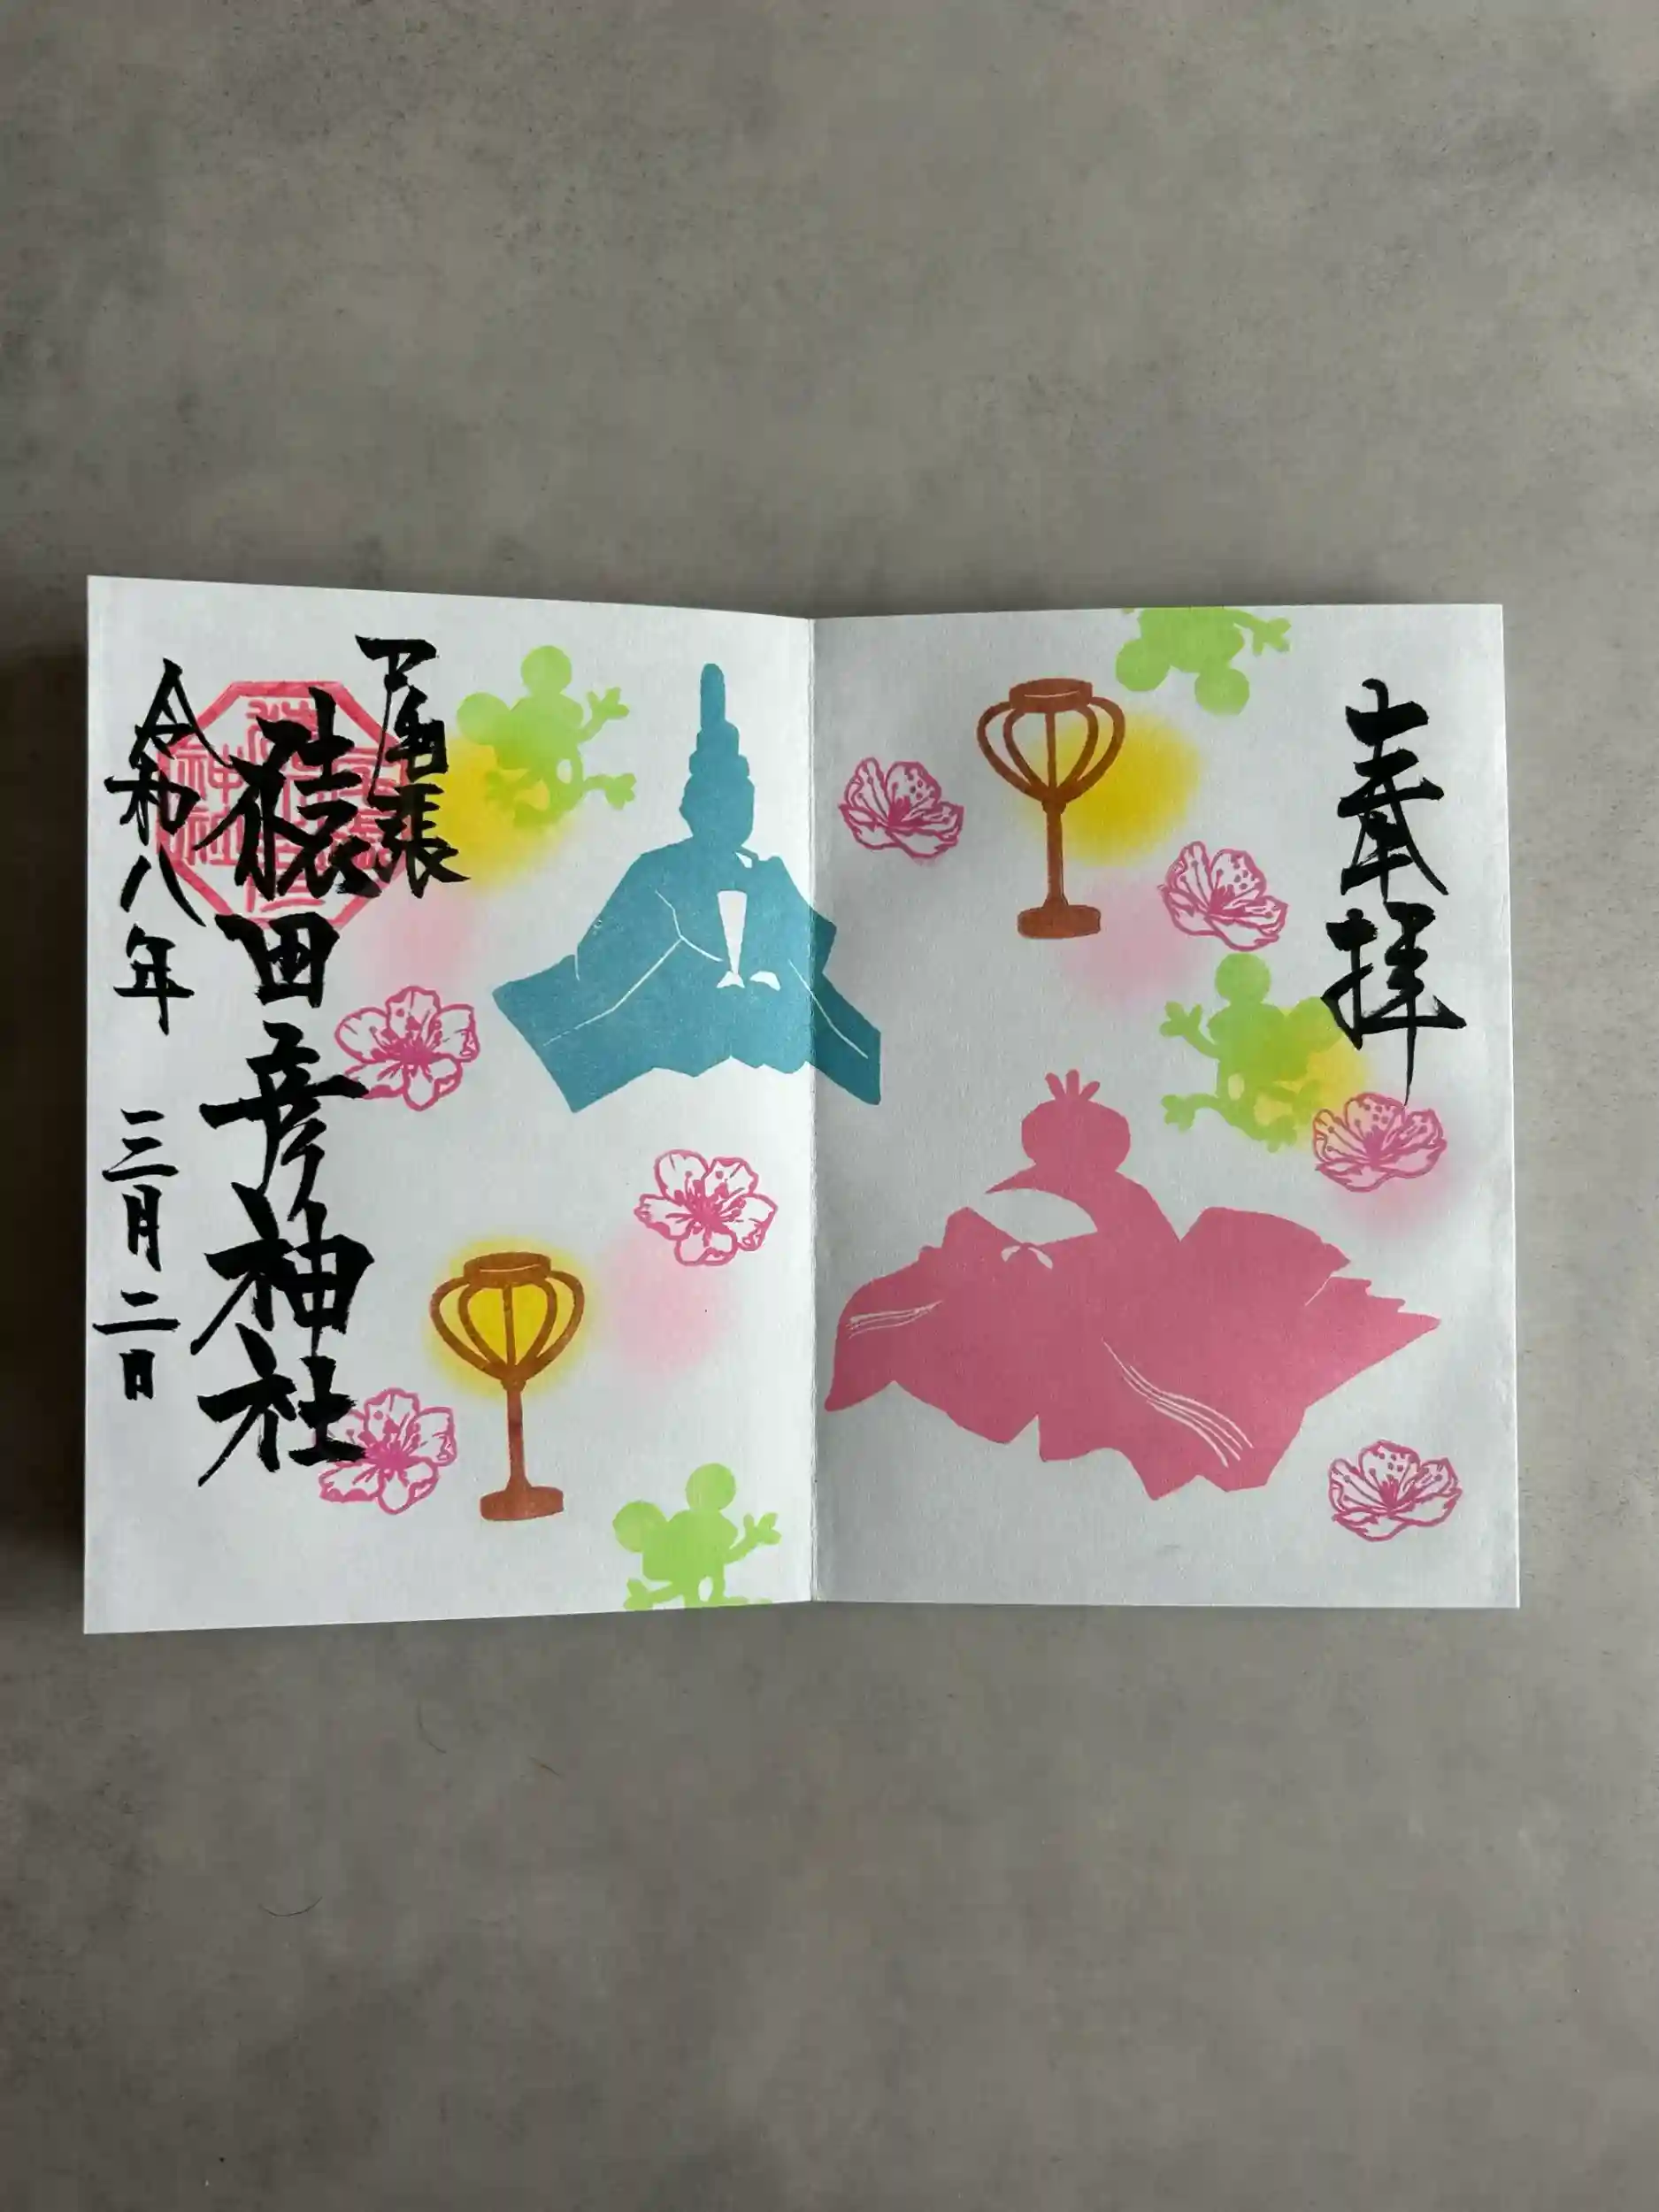 奉拝
尾張
猿田彦神社
令和八年 三月二日